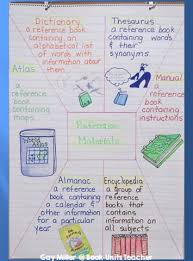 Dictionary
a reference book
containing an
alphabetical list
of words with
information about
them
Thesaurus
a reference book
containing words
& their
synonyms
Atlas
a reference
book
containing
maps
Manual
a reference
book
containing
instructions
Reference
Materials
Almanac
a reference
book containing
a calendar &
other information
for a particular
year
Encyclopedia
a group of
reference
books that
contains
information on
all subjects
Gay Miller @ Book Units Teacher